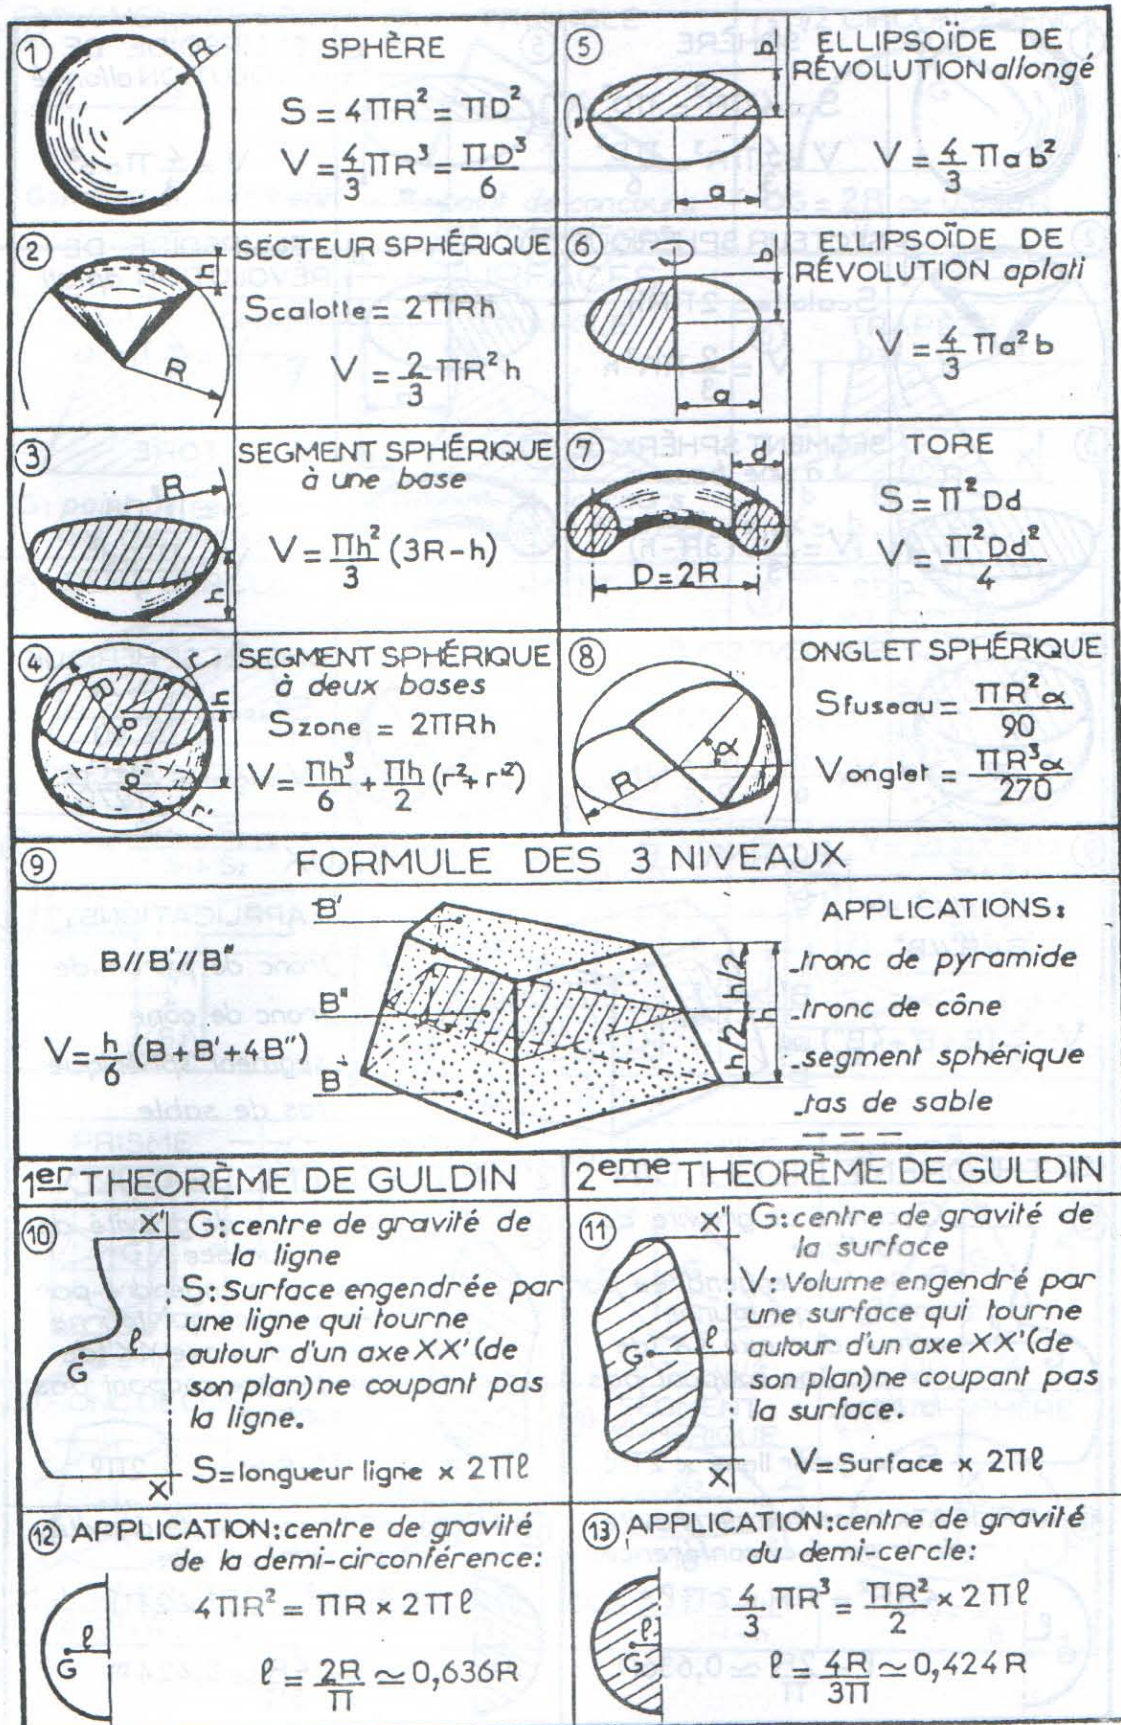 ① SPHÈRE
R
S = 4ΠR² = ΠD²
V = 4/3 ΠR³ = ΠD³/6
② SECTEUR SPHÉRIQUE
h
R
Scalotte = 2ΠRh
V = 2/3 ΠR²h
③ SEGMENT SPHÉRIQUE
à une base
R
h
V = Πh²/3 (3R-h)
④ SEGMENT SPHÉRIQUE
à deux bases
R r h
o
o'
r'
Szone = 2ΠRh
V = Πh³/6 + Πh/2 (r²+r'²)
⑤ ELLIPSOÏDE DE
RÉVOLUTION allongé
b
a
V = 4/3 Πab²
⑥ ELLIPSOÏDE DE
RÉVOLUTION aplati
b
a
V = 4/3 Πa²b
⑦ TORE
d
D=2R
S = Π²Dd
V = Π²Dd²/4
⑧ ONGLET SPHÉRIQUE
α
R
Sfuseau = ΠR²α/90
Vonglet = ΠR³α/270
⑨ FORMULE DES 3 NIVEAUX
B//B'//B"
V = h/6 (B+B'+4B")
B'
B"
B
h/2
h/2
h
APPLICATIONS:
_tronc de pyramide
_tronc de cône
_segment sphérique
_tas de sable
_ _ _ _
1er THEORÈME DE GULDIN
⑩ X' G: centre de gravité de
la ligne
S: Surface engendrée par
une ligne qui tourne
autour d'un axe XX' (de
son plan) ne coupant pas
la ligne.
G ℓ
X S=longueur ligne x 2Πℓ
2eme THEORÈME DE GULDIN
⑪ X' G: centre de gravité de
la surface
V: Volume engendré par
une surface qui tourne
autour d'un axe XX' (de
son plan) ne coupant pas
la surface.
G ℓ
X V=Surface x 2Πℓ
⑫ APPLICATION: centre de gravité
de la demi-circonférence:
4ΠR² = ΠR x 2Πℓ
G ℓ
ℓ = 2R/Π ≃ 0,636R
⑬ APPLICATION: centre de gravité
du demi-cercle:
4/3 ΠR³ = ΠR²/2 x 2Πℓ
G ℓ
ℓ = 4R/3Π ≃ 0,424R